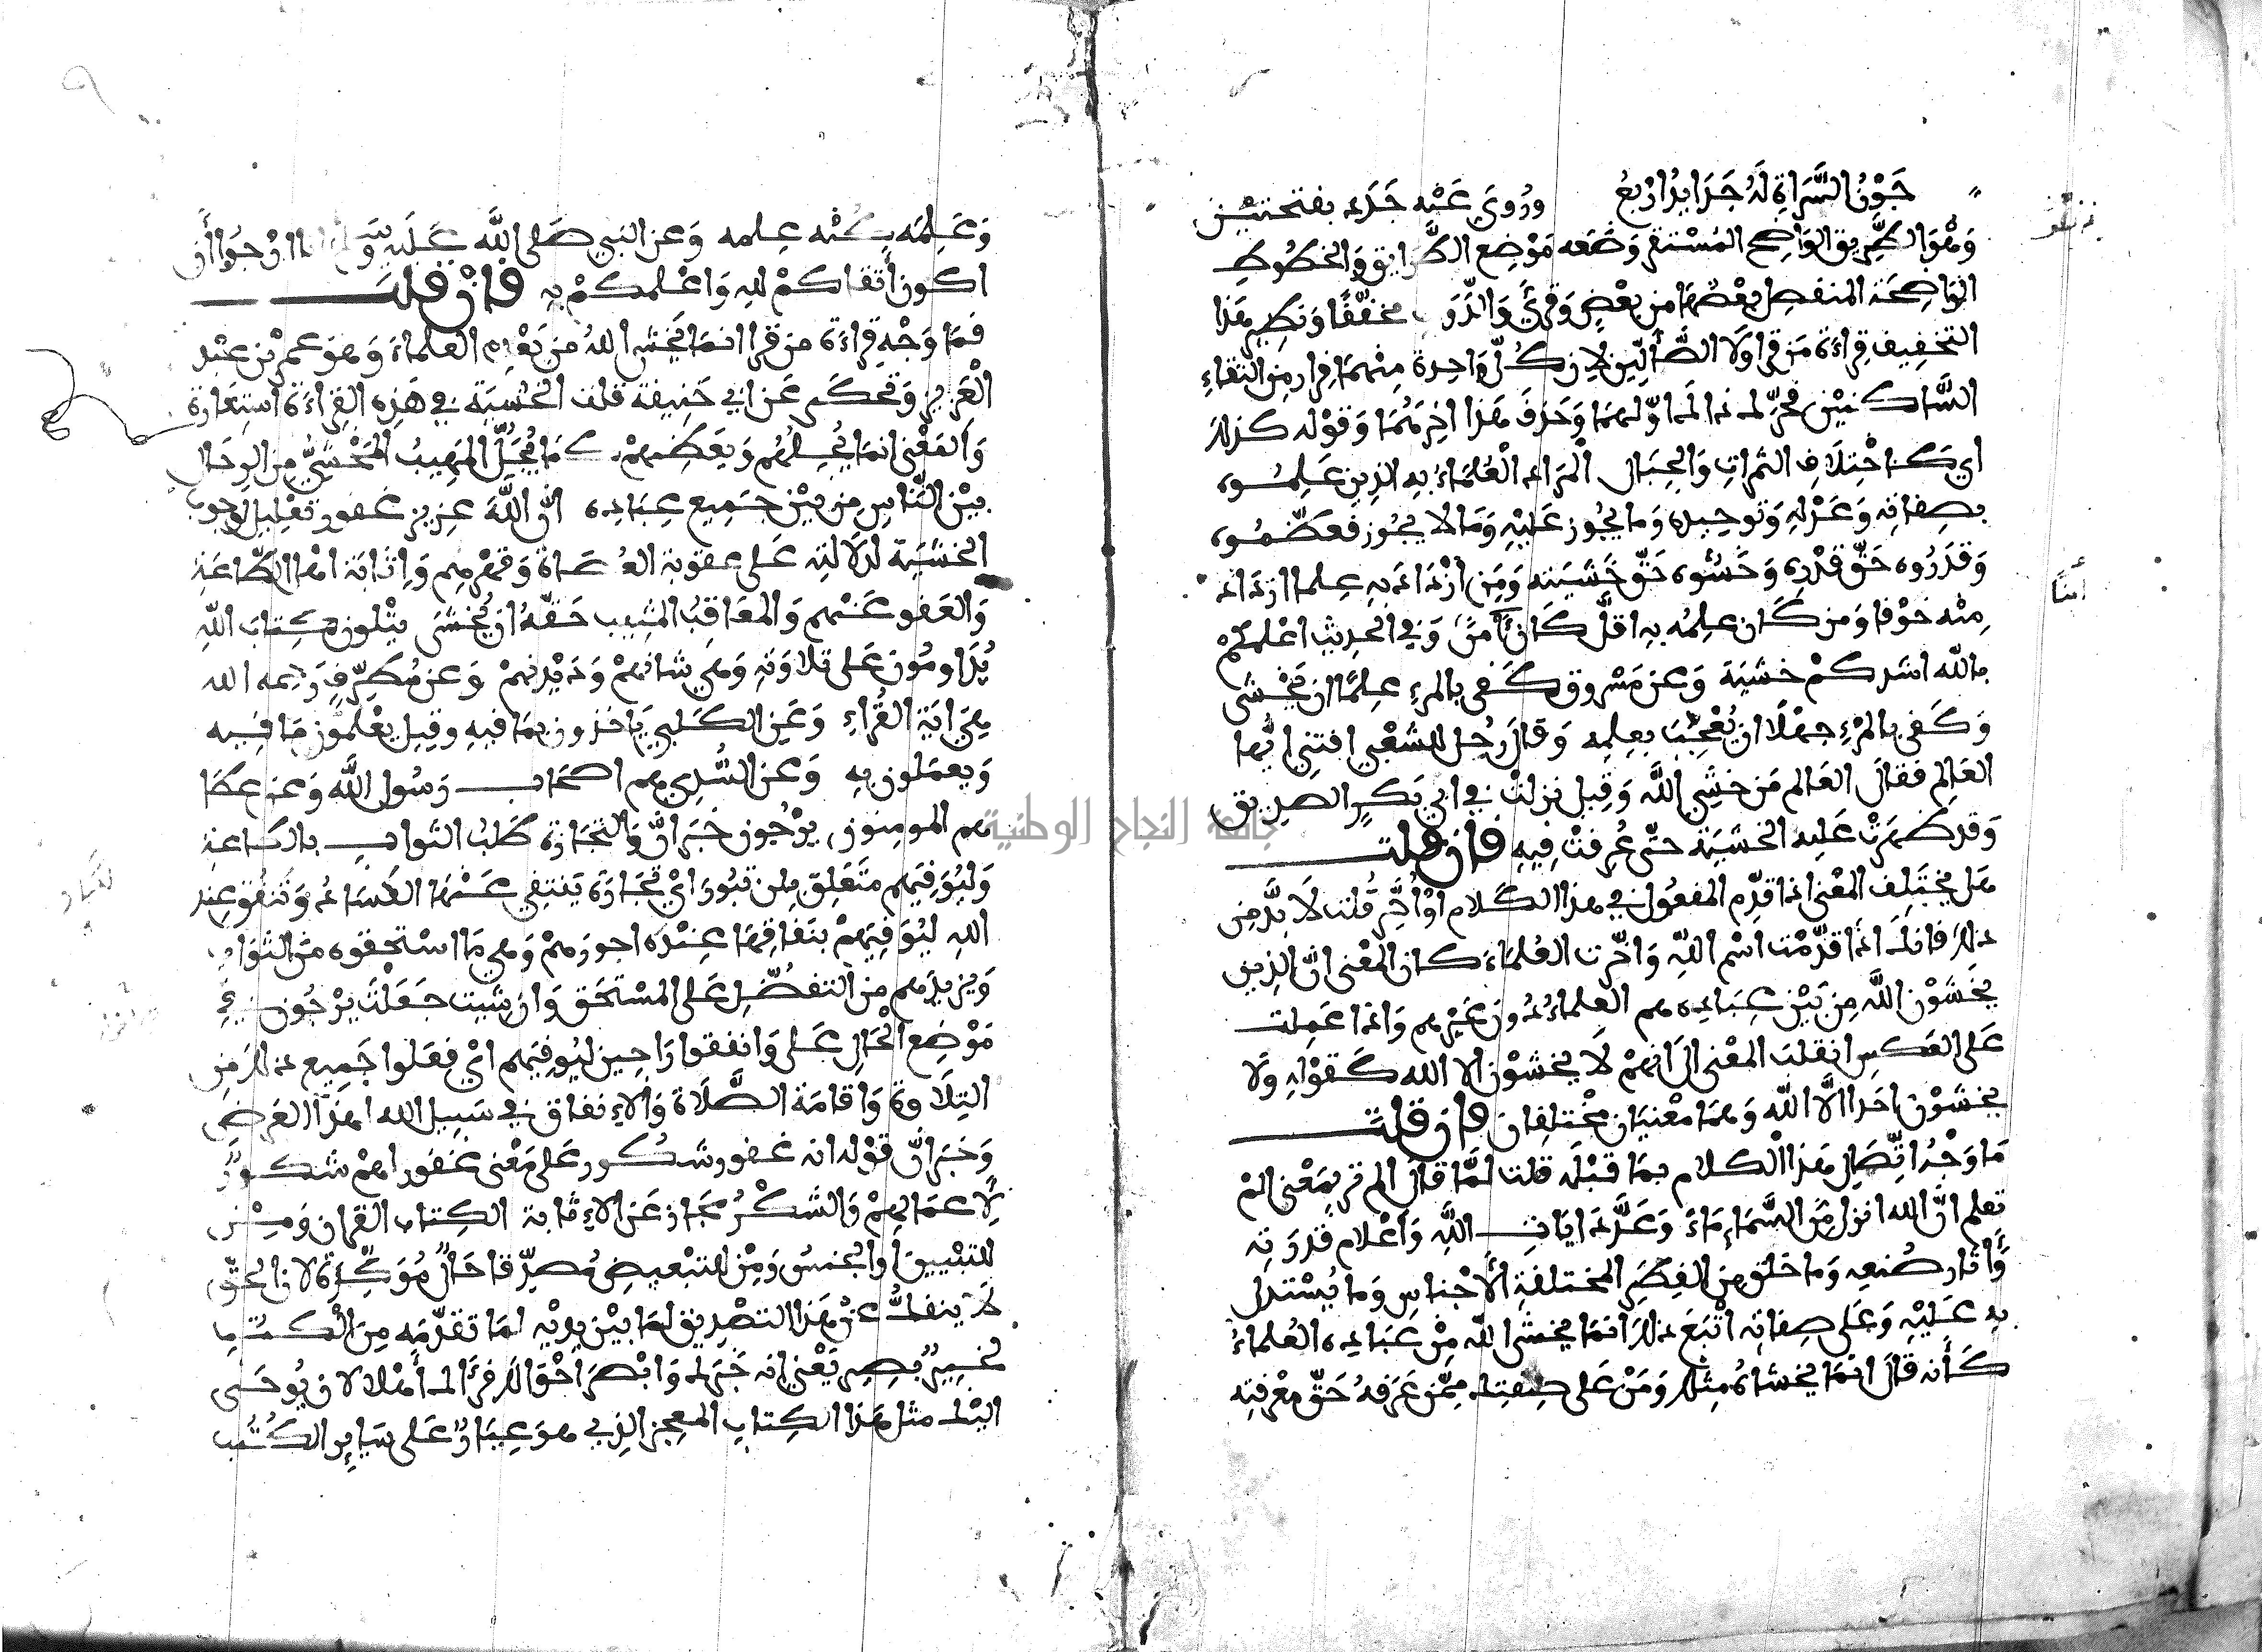 جَوْنُ السَّرَاةِ لَهُ جَدَايِدُ ارْبَعُ وَرُوِيَ عَنْه جَدَد بفتحتيْن
وَهْوَ الطَّرِيق الوَاضِح المُسْتقر وَضَعَه مَوْضِع الطَّرَايق وَالخطُوطِ
الوَاضِحَة المنفصِل بعْضهَا من بعْض وَقرِئَ وَالدَّوَابِ مخفّفًا وَنظِير هَذا
التخفِيف قِرَاءَة مَن قرا وَلَا الضَّأَلِّين لِان كُلّ وَاحِدة مِنْهمَا فِرار مِن التقاءِ
السَّاكنيْن فحَرّك ذالك اوّلهمَا وَحَذفَ هَذا اخِرَهُمَا وَقوْله كذلكَ
اي كاخْتِلَافِ الثمَراتِ وَالجِبَال المْرَاد الْعُلمَاءُ به الذِين عَلِمُوه
بصِفاتِه وَعَدْلهِ وَتوحِيدِه وَما يجُوز عَليْهِ وَمَا لا يجُوز فعَظّمُوه
وَقدَرُوه حَقّ قدْرِه وَخَشُوه حَقّ خَشيَته وَمَن ازْدَادَ به عِلما ازدَاد
مِنْه خوْفا وَمَن كَان عِلمُه به اقلّ كَان آمَنَ وَفي الحَدِيث اعْلمكمْ
بالله اشدكمْ خشيَة وَعن مَسْروق كَفى بالمرءِ عِلمًا ان يَخْشى
وَكفى بالمرْءِ جهْلًا ان يُعْجِبَ بعِلمِه وَقال رَجُل للشعْبي افتنِي ايّها
العَالِم فقالَ العَالم مَن خشِيَ اللَّه وَقِيل نزلتْ في ابي بَكر الصديق
وَقد ظهرَتْ عَليه الخشيَة حتّى عُرِفتْ فِيهِ فان قلت
هَل يختَلِف المعْنى اذا قدّم المفعُول في هَذا الكَلام اوْ أُخّر قُلت لَا بدَّ مِن
ذلكَ فانكَ اذا قدّمْتَ اسْم اللّهِ وَاخّرت العُلمَاءَ كان المعْنى انّ الذِين
يخشَوْن اللَّه مِن بَيْن عِبَادِه هم العلماءُ دُون غيْرهم وَاذا عَمِلت
عَلى العَكسِ انقلبَ المعْنى الَى انهمْ لَا يخشوْن الا الله كقوْلهِ وَلَا
يخشوْن احَدا الَّا اللّه وَهمَا معْنيَان مُخْتلِفان فان قلت
مَا وَجْهُ اتِّصَالِ هَذا الْكلام بمَا قبْلَه قلت لمَّا قالَ الم تر بمَعْنى الم
تعلم انّ الله انزل مِنَ السَّمَاءِ مَاءً وَعَدَّدَ ايَاتِ اللَّهِ وَأعْلام قُدرَتِه
وَآثار صُنعِه وَما خَلق مِن الفِطَرِ المختلفةِ الأَجْناسِ وَما يُسْتدل
بهِ عَليْهِ وَعَلى صِفاتِه اتْبَعَ ذلكَ انمَا يخشَى اللّه مِنْ عِبَادِه العُلماءُ
كأنه قالَ انمَا يخشاهُ مِثلك وَمَنْ عَلى صِفتِك مِمَّن عَرَفهُ حَقّ معْرفتِه
وَعَلِمَه بكُنْه عِلمه وَعن النبي صَلى اللَّه عَلَيْهِ وَسَلم انا ارْجوا أن
اكون أتقاكمْ للهِ وَاعْلمكمْ به فان قلت
فمَا وَجْه قِراءَة من قرا انمَا يخشى اللهُ من عِبَادِه العلماءَ وَهوَ عمر بن عبْد
الْعَزِيز وَتحكَى عَن ابي حَنِيفة قلت الخشيَة في هَذِه القِراءَة استِعَارة
وَالمَعْنى انمَا يُجِلُّهُم وَيعَظِّمهمْ كمَا يُجَلُّ المَهِيبُ المَخْشِيُّ مِن الرجَال
بيْن النَّاسِ مِن بيْن جَمِيع عِبَادِه انّ اللَّهَ عزِيز غفور تعْلِيل لوجوب
الخشيَة لدلَالتِه عَلى عقوبة العُصَاة وَقهْرهِم وَإثابَة اهْل الطّاعَة
وَالعَفو عَنهم وَالمعَاقبُ المثِيب حَقّهُ ان يُخشَى يتْلون كِتابَ اللّهِ
يُدَاومُون عَلى تلاوَتِه وَهي شانهمْ وَدَيْدنهمْ وَعن مُطَرِّفٍ رَحِمه الله
هِيَ ايَة القُرَّاءِ وَعَن الكَلبي يَاخذون بمَا فيهِ وقِيل يعْلمُون مَا فِيه
وَيعمَلون بهِ وَعن السُّدي هم اصحَاب رَسُول اللَّه وَعن عَطا
هم المومِنون يرْجُون خبَر انّ وَالتجَارة طَلبُ الثواب بالطاعَة
وَليُوَفِّيَهم متَعَلِّق بلن تبُورَ ايْ تجَارَة يَنتفي عَنْهَا الكسَادُ وَتنْفُق عِند
اللهِ ليُوَفِّيَهمْ بنَفَاقِهَا عِنْدَه اجورَهمْ وَهي مَا اسْتحقوه مَن الثوَاب
وَيزِيدَهم من التفضُّل عَلى المسْتحَق وَان شِيت جعَلْتَ يرْجُون في
مَوْضِع الْحَالِ عَلى وَانفقوا رَاجِين ليُوفِّيَهم ايْ فعَلوا جَمِيع ذلكَ مِن
التِلَاوة وَاقامَة الصَّلَاة وَالإنفاق في سَبِيل الله لهَذا الغَرض
وَخبَر انّ قوْله انه غفور شكُور عَلى مَعْنى غَفور لهمْ شكورٌ
لِأعمَالِهمْ وَالشكْرُ مجَاز عَن الإثابة الكِتاب القرءان وَمِن
للتبْيِين أو الجنسُ وَمِنْ للتبْعِيض مُصدِّقا حَالٌ مُوَكِّدَةٌ لان الحَقّ
لا ينفكُّ عنْ هَذا التصْدِيق لمَا بيْن يدِيْه لمَا تقدّمَه مِن الكتُب
لخبِيرٌ بصِير يَعْني انه خَبَرك وَابْصَرَ احْوَالك فرَءَاك أهْلا لان يُوحَى
اليْك مثل هَذا الكِتاب المعجِز الذِي هوَ عِيَارٌ عَلى سَايِر الكتُب
جامعة النجاح الوطنية